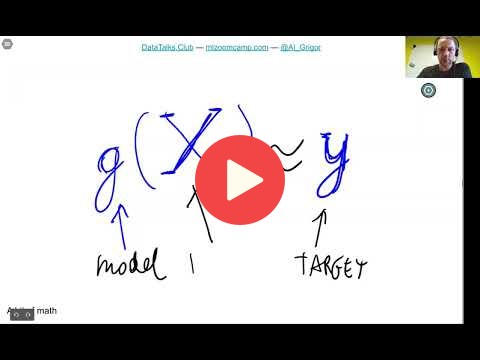 DataTalks.Club — mlzoomcamp.com — @Al_Grigor
g(X) ≈ y
model
TARGET